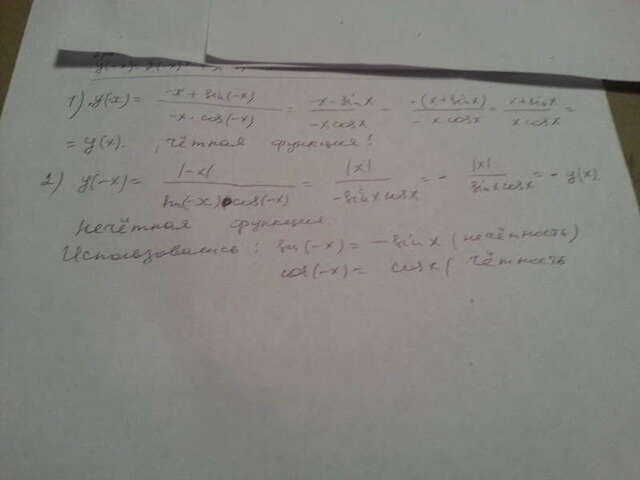 1) y(x) = (-x + sin(-x))/(-x · cos(-x)) = (-x - sin x)/(-x cos x) = (-(x + sin x))/(-x cos x) = (x + sin x)/(x cos x) =
= y(x). , чётная функция!
2) y(-x) = |-x|/(sin(-x) cos(-x)) = |x|/(-sin x cos x) = - |x|/(sin x cos x) = - y(x).
Нечётная функция.
Использовались: sin(-x) = -sin x (нечётность)
cos(-x) = cos x ( чётность